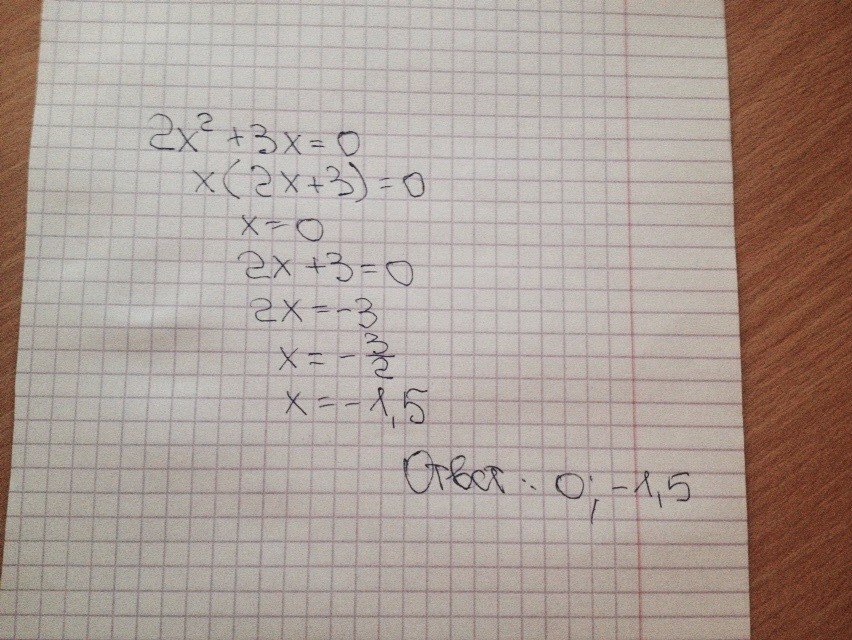 2x² + 3x = 0
x(2x+3) = 0
x = 0
2x + 3 = 0
2x = -3
x = -3/2
x = -1,5
Ответ: 0; -1,5